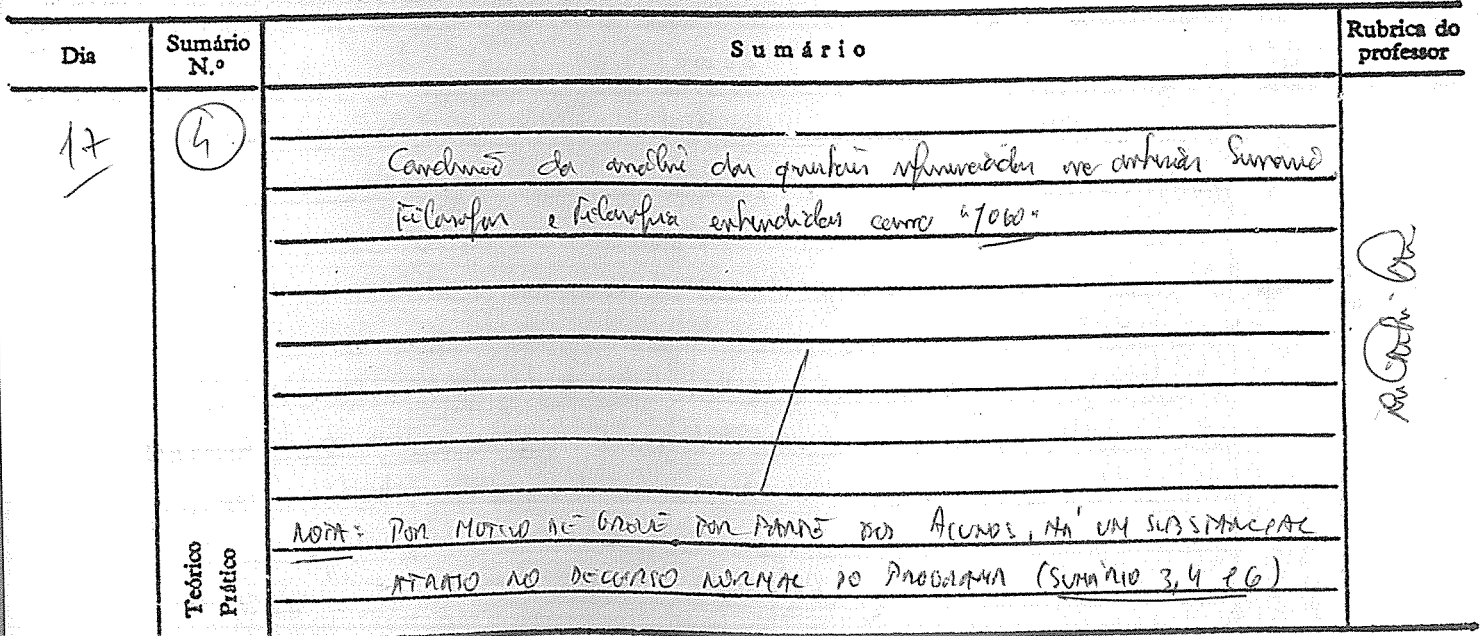 Dia
Sumário N.º
Sumário
Rubrica do professor
17
4
Conclusão da análise das questões referenciadas no anterior Sumário
Filosofar e Filosofia entendidas como "JOGO"
NOTA: POR MOTIVO DE GREVE POR PARTE DOS ALUNOS, HÁ UM SUBSTANCIAL
ATRASO NO DECURSO NORMAL DO PROGRAMA (SUMÁRIO 3, 4 e 6)
Teórico
Prático